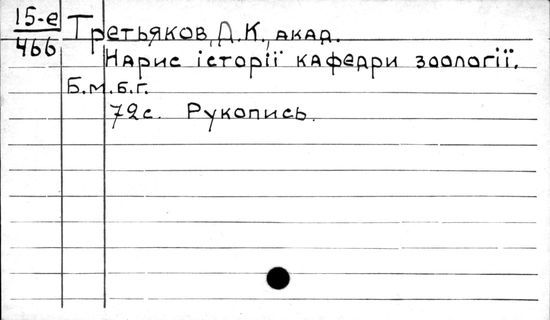 15-е
466
Третьяков, Д.К., акад.
Нарис історії кафедри зоології.
Б.м.б.г.
72с. Рукопись.